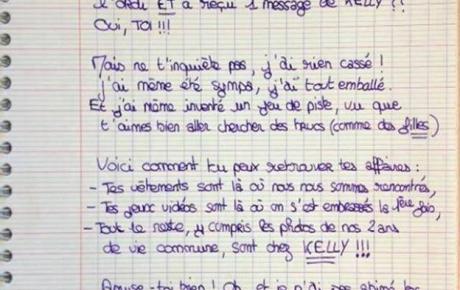 l'ordi ET a reçu 1 message de KELLY ??
Oui, TOI !!!
Mais ne t'inquiète pas, j'ai rien cassé !
j'ai même été sympa, j'ai tout emballé.
Et j'ai même inventé un jeu de piste, vu que
t'aimes bien aller chercher des trucs (comme des filles)
Voici comment tu peux retrouver tes affaires :
- Tes vêtements sont là où nous nous sommes rencontrés,
- Tes jeux vidéos sont là où on s'est embrassés la 1ère fois,
- Tout le reste, y compris les photos de nos 2 ans
de vie commune, sont chez KELLY !!!
Amuse-toi bien ! Oh, et je n'ai pas abîmé les